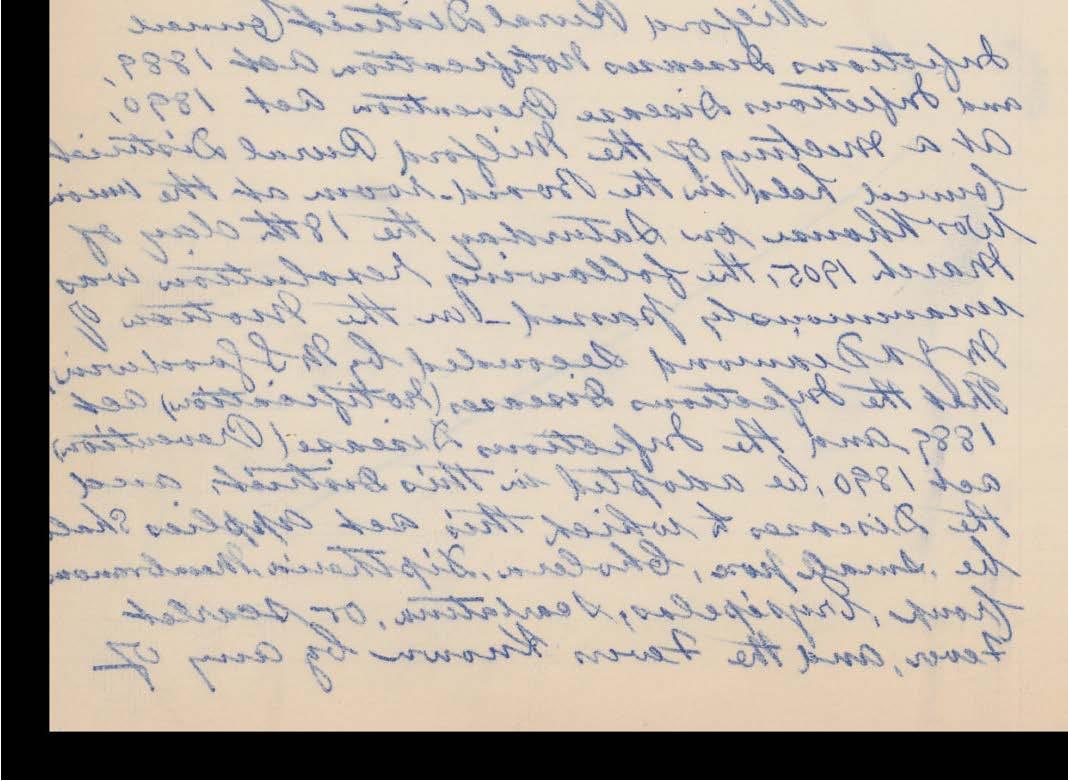 Milford Rural District Council
Infectious Diseases Notification Act 1889,
and Infectious Disease Prevention Act 1890,
At a Meeting of the Milford Rural District
Council held in the Board Room at the Union
Workhouse on Saturday the 18th day of
March 1905, the following resolution was
unanimously passed - On the Motion of
Seconded by
That the Infectious Diseases (Notification) Act
1889 and the Infectious Disease (Prevention)
Act 1890, be adopted in this District, and
the Diseases to which this Act applies Shall
be, Small pox, Cholera, Diptheria, Membranous
Croup, Erysipelas, Scarlatina, or Scarlet
Fever, and the Fevers Known by any of